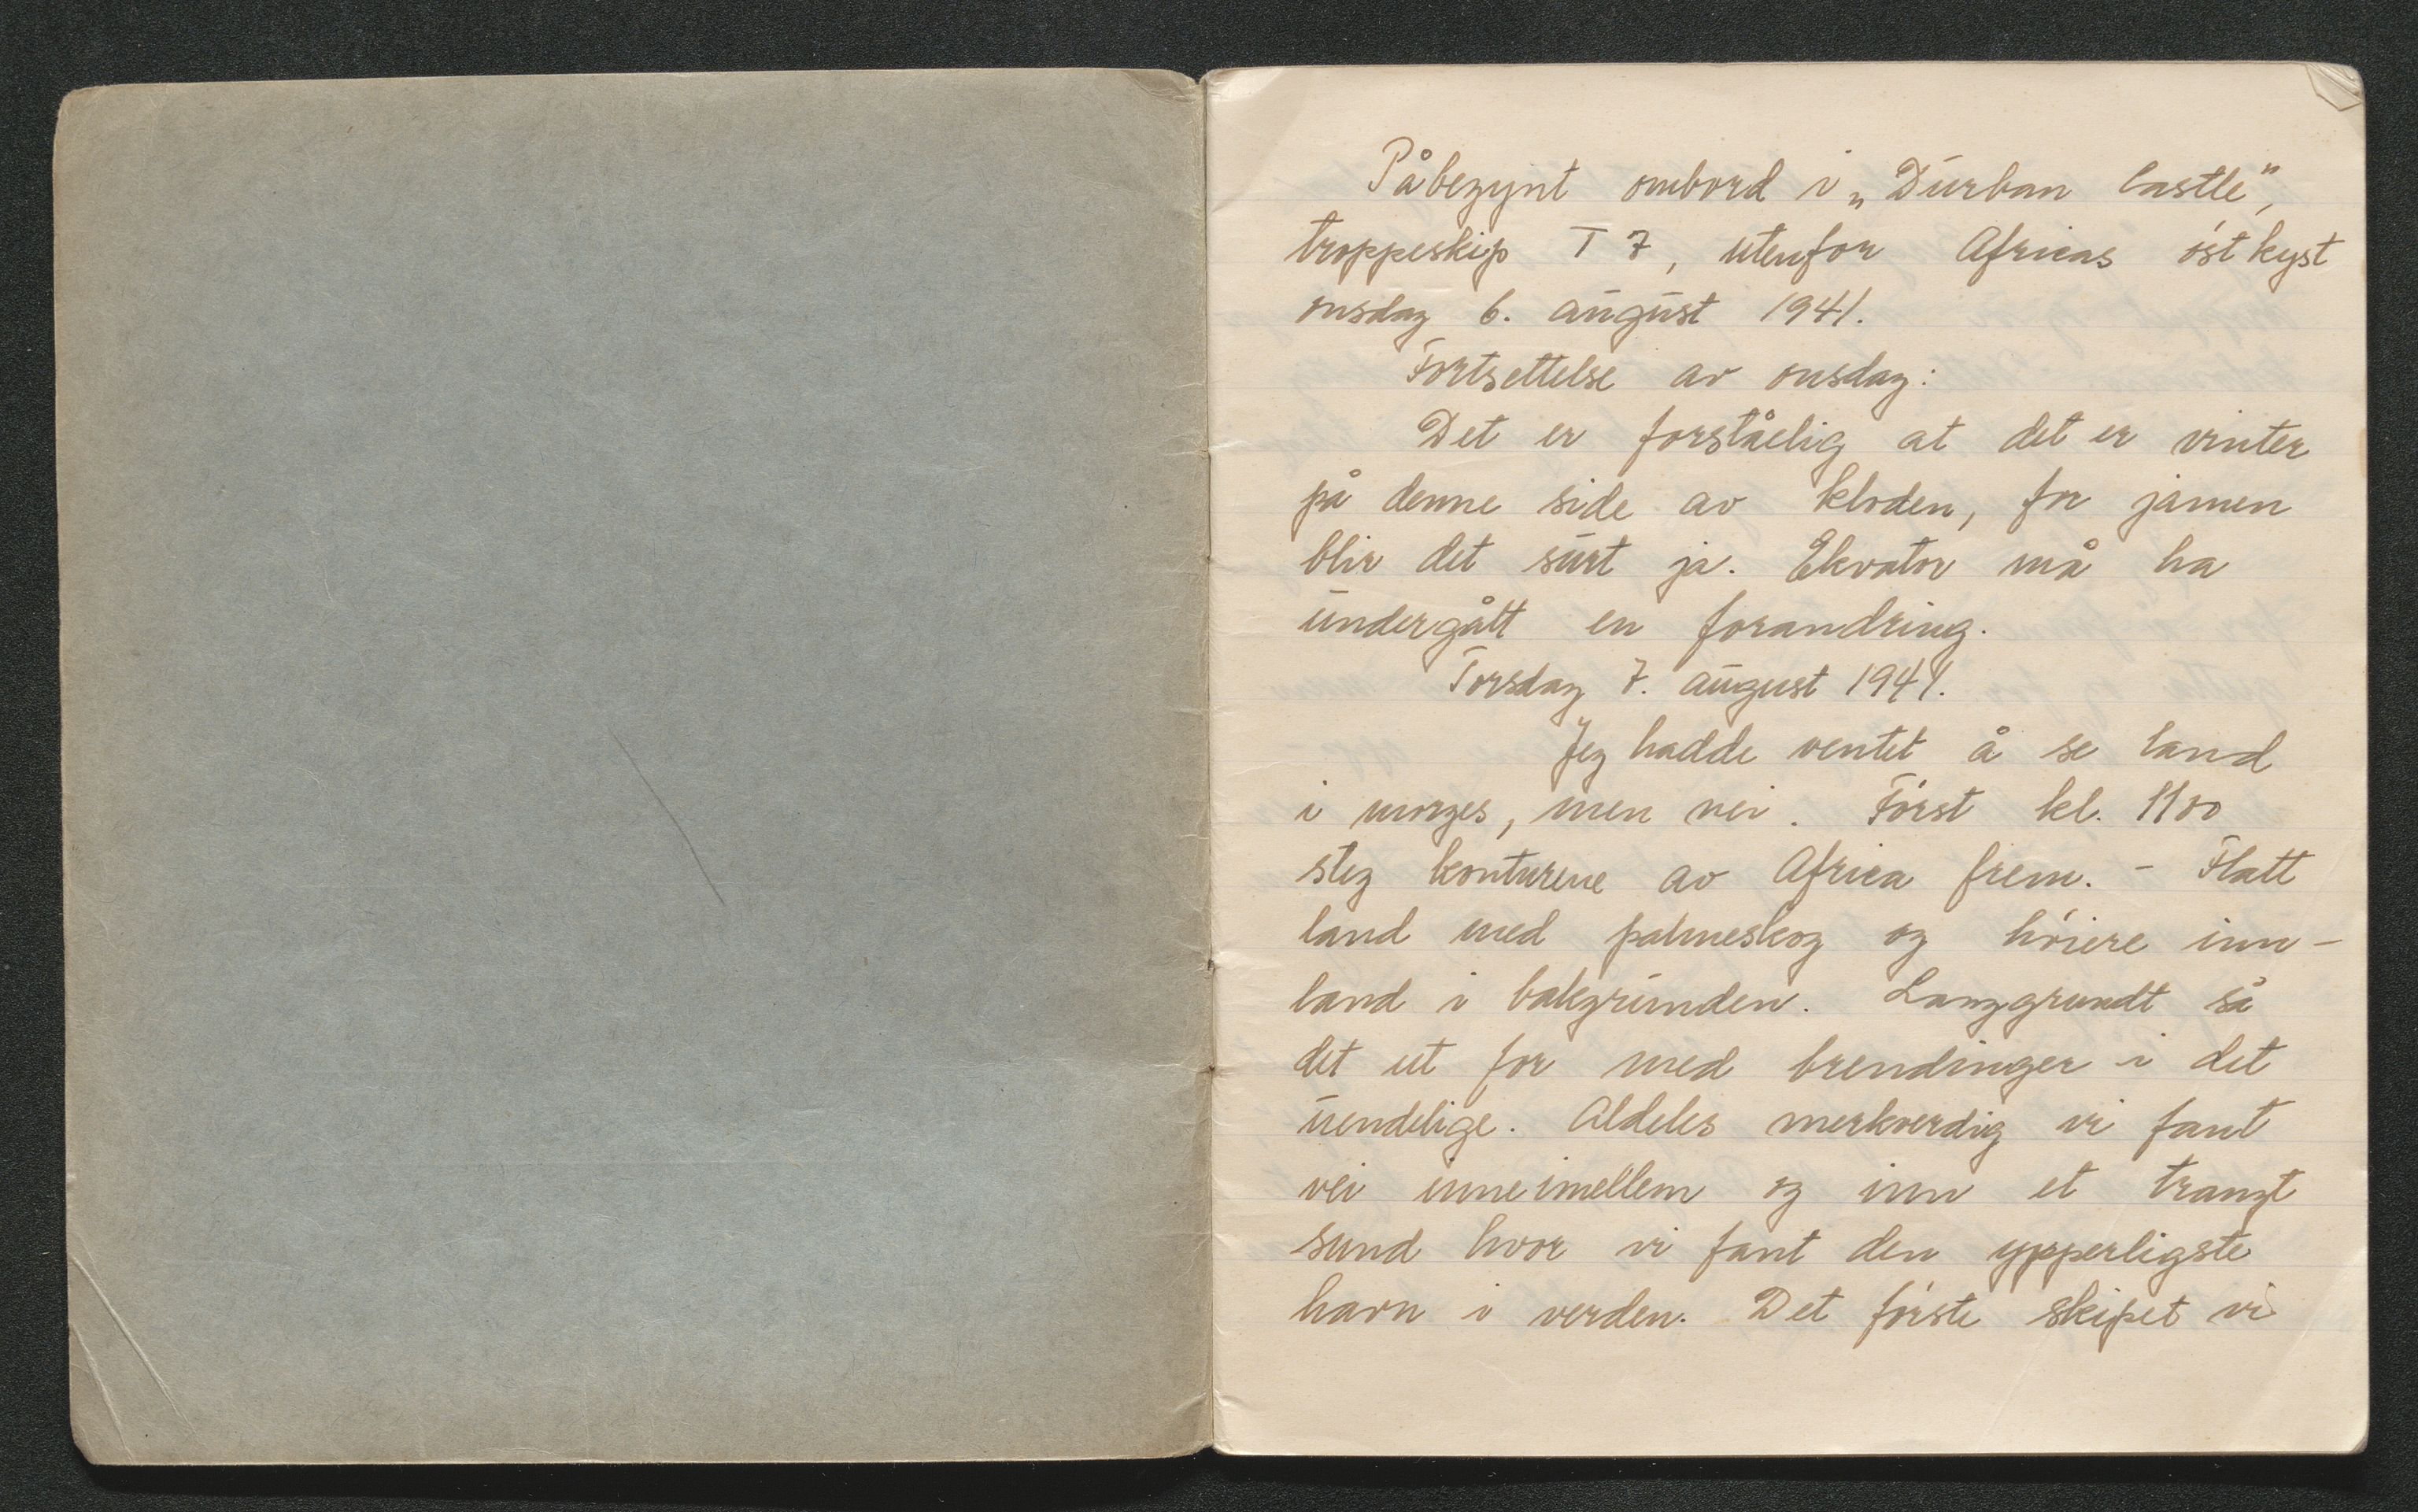 Påbegynt ombord i „Durban Castle",
troppeskip T 7, utenfor Africas østkyst
onsdag 6. august 1941.
Fortsettelse av onsdag:
Det er forståelig at det er vinter
på denne side av kloden, for jamen
blir det surt ja. Ekvator må ha
undergått en forandring.
Torsdag 7. august 1941.
Jeg hadde ventet å se land
i morges, men nei. Først kl. 1100
steg konturene av Africa frem. - Flatt
land med palmeskog og høiere inn-
land i bakgrunden. Langgrundt så
det ut for med brendinger i det
uendelige. Aldeles merkverdig vi fant
vei inneimellem og inn et trangt
sund hvor vi fant den ypperligste
havn i verden. Det første skipet vi